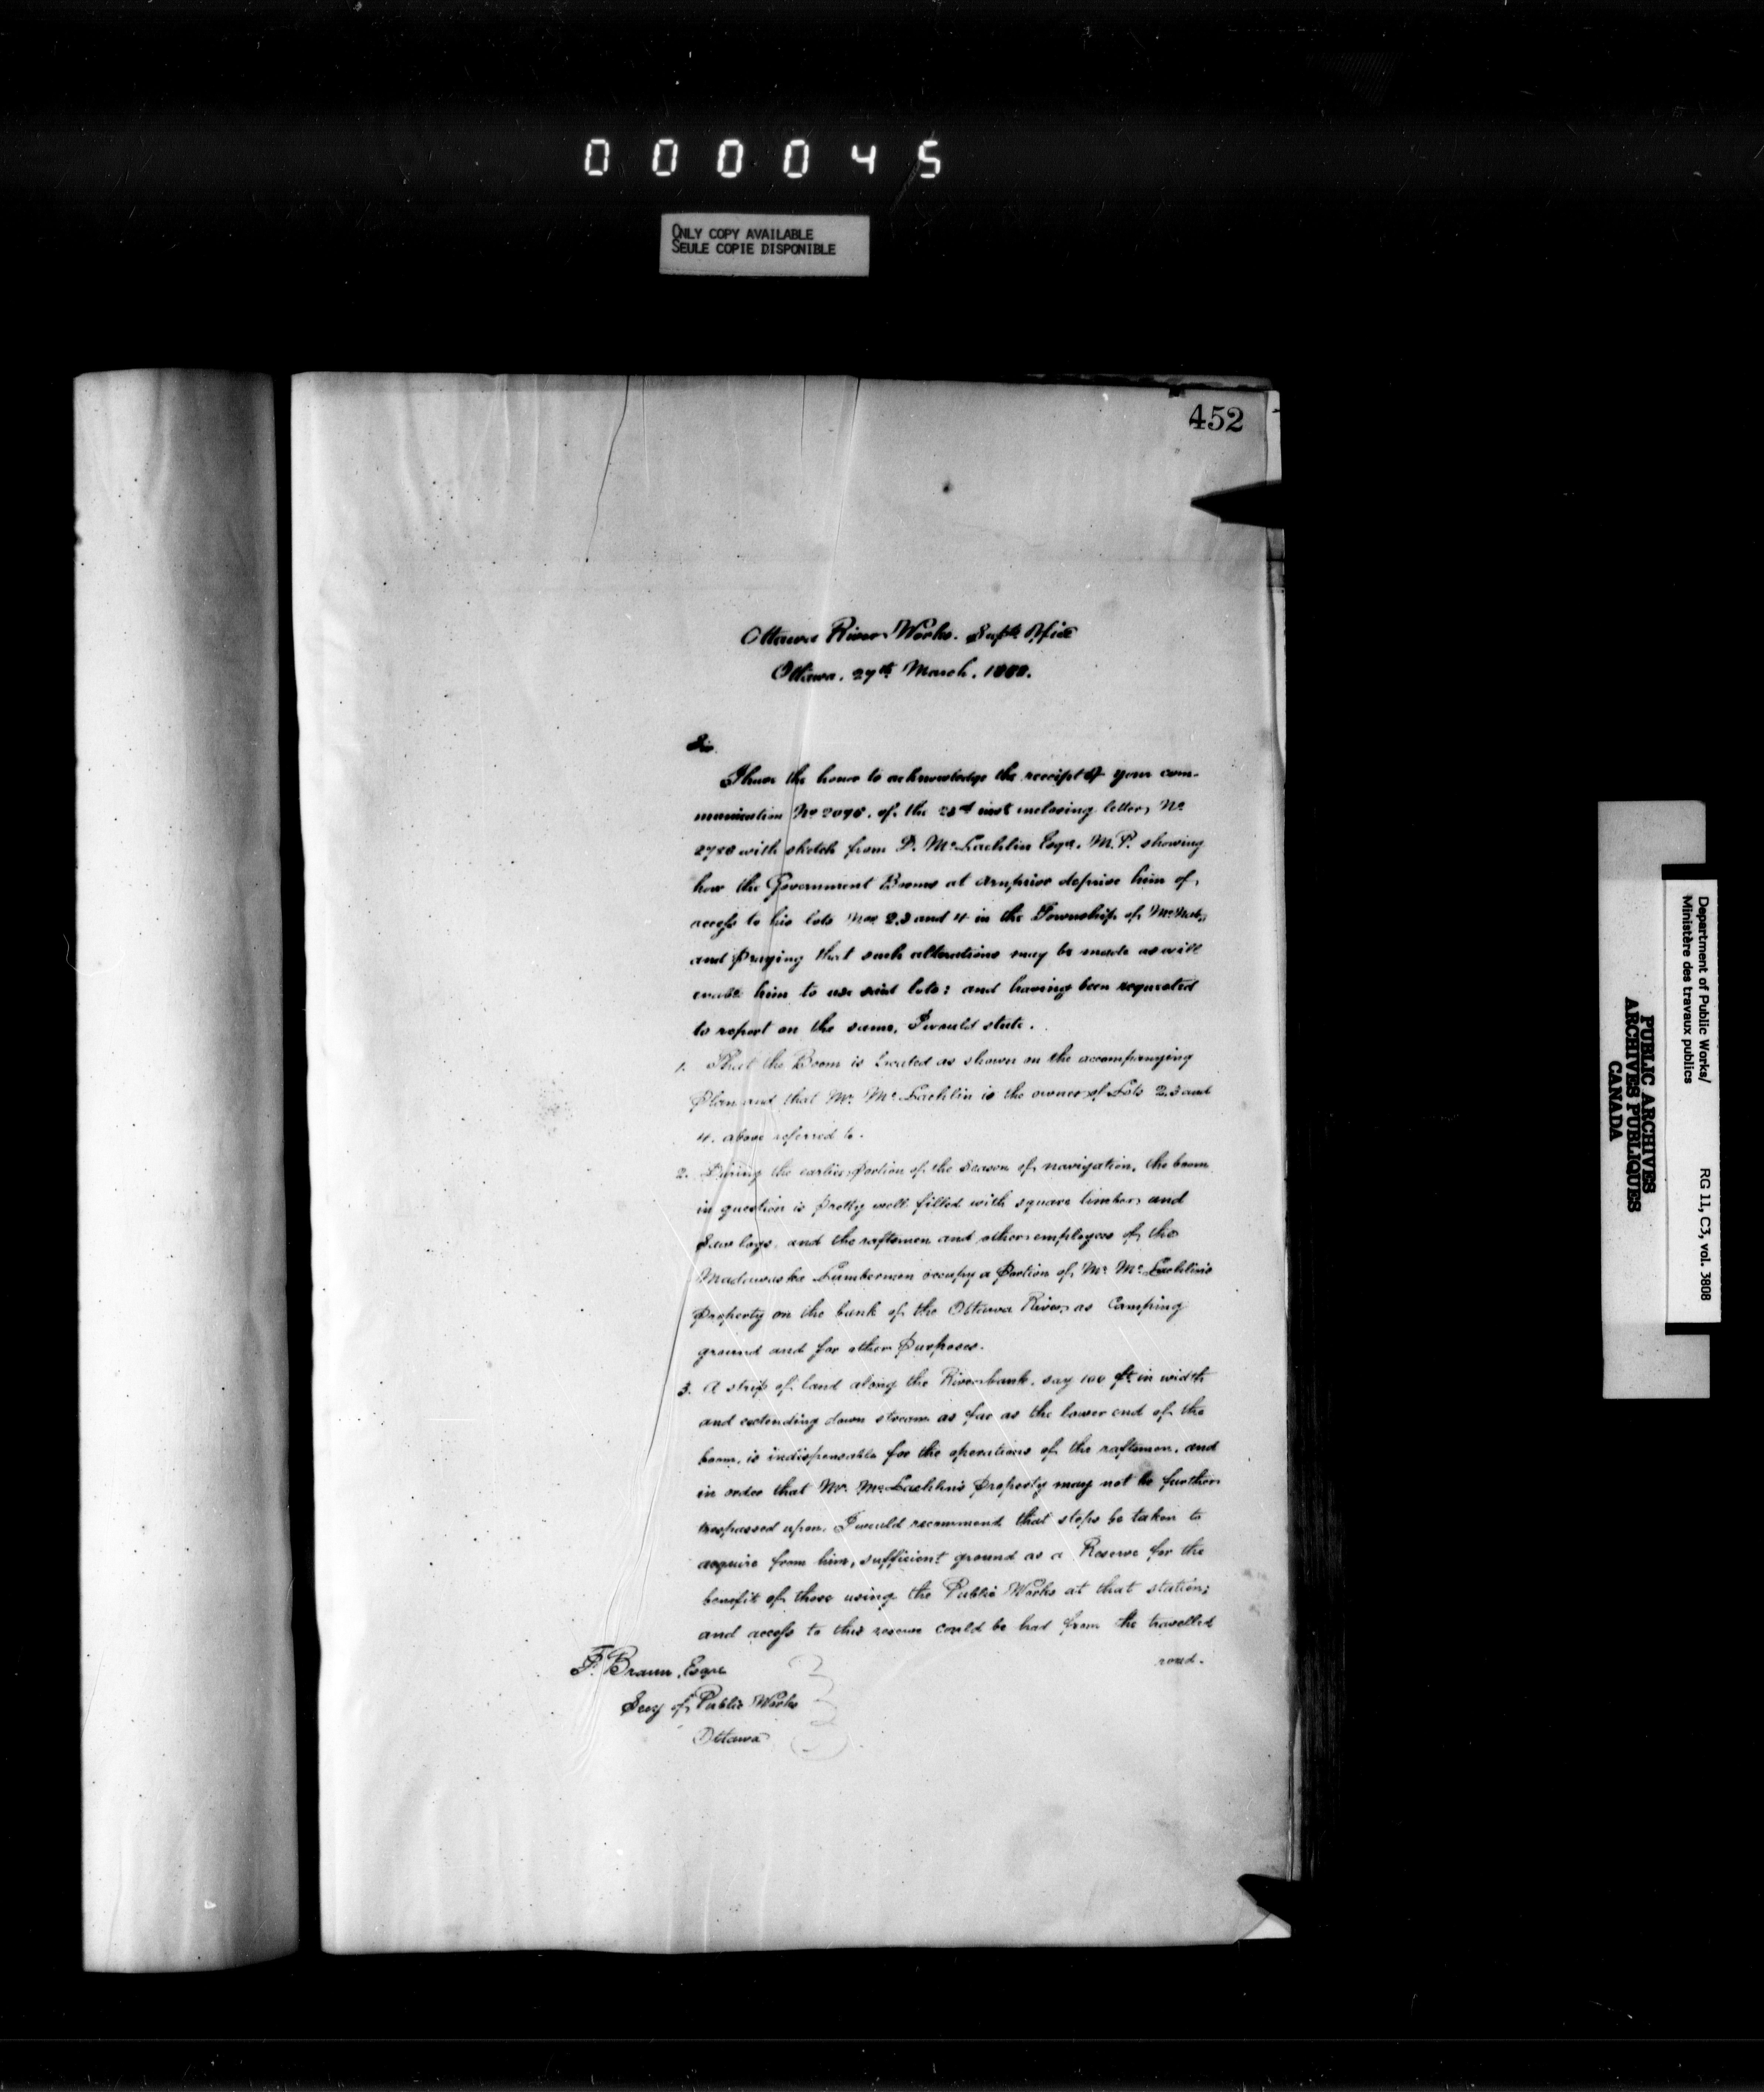 000045
ONLY COPY AVAILABLE
SEULE COPIE DISPONIBLE
452
Ottawa River Works. Supts Office
Ottawa. 27th March.
Sir.
I have the honor to acknowledge the receipt of your com-
munication No of the inst enclosing letter No
with sketch from McLachlin Esqr. M.P. showing
how the Government Booms at Arnprior deprive him of
access to his lots Nos 2,3 and 4 in the Township of McNab,
and praying that such alterations may be made as will
enable him to use said lots: and having been requested
to report on the same, I would state.
1. That the Boom is located as shown on the accompanying
Plan and that Mr. McLachlin is the owner of Lots 2,3 and
4. above referred to.
2. During the earlier portion of the Season of navigation, the boom
in question is pretty well filled with square timber and
Saw logs, and the raftsmen and other employees of the
Madawaska Lumbermen occupy a Portion of Mr. McLachlin's
Property on the bank of the Ottawa River as Camping
ground and for other Purposes.
3. A strip of land along the River bank, say 100 ft in width
and extending down stream as far as the lower end of the
boom, is indispensable for the operations of the raftsmen, and
in order that Mr. McLachlin's Property may not be further
trespassed upon, I would recommend that steps be taken to
acquire from him, sufficient ground as a Reserve for the
benefit of those using the Public Works at that station;
and access to this reserve could be had from the travelled
road.
F. Braun, Esqre
Secy of Public Works
Ottawa
Department of Public Works/
Ministère des travaux publics
RG 11, C3, vol. 3808
PUBLIC ARCHIVES
ARCHIVES PUBLIQUES
CANADA